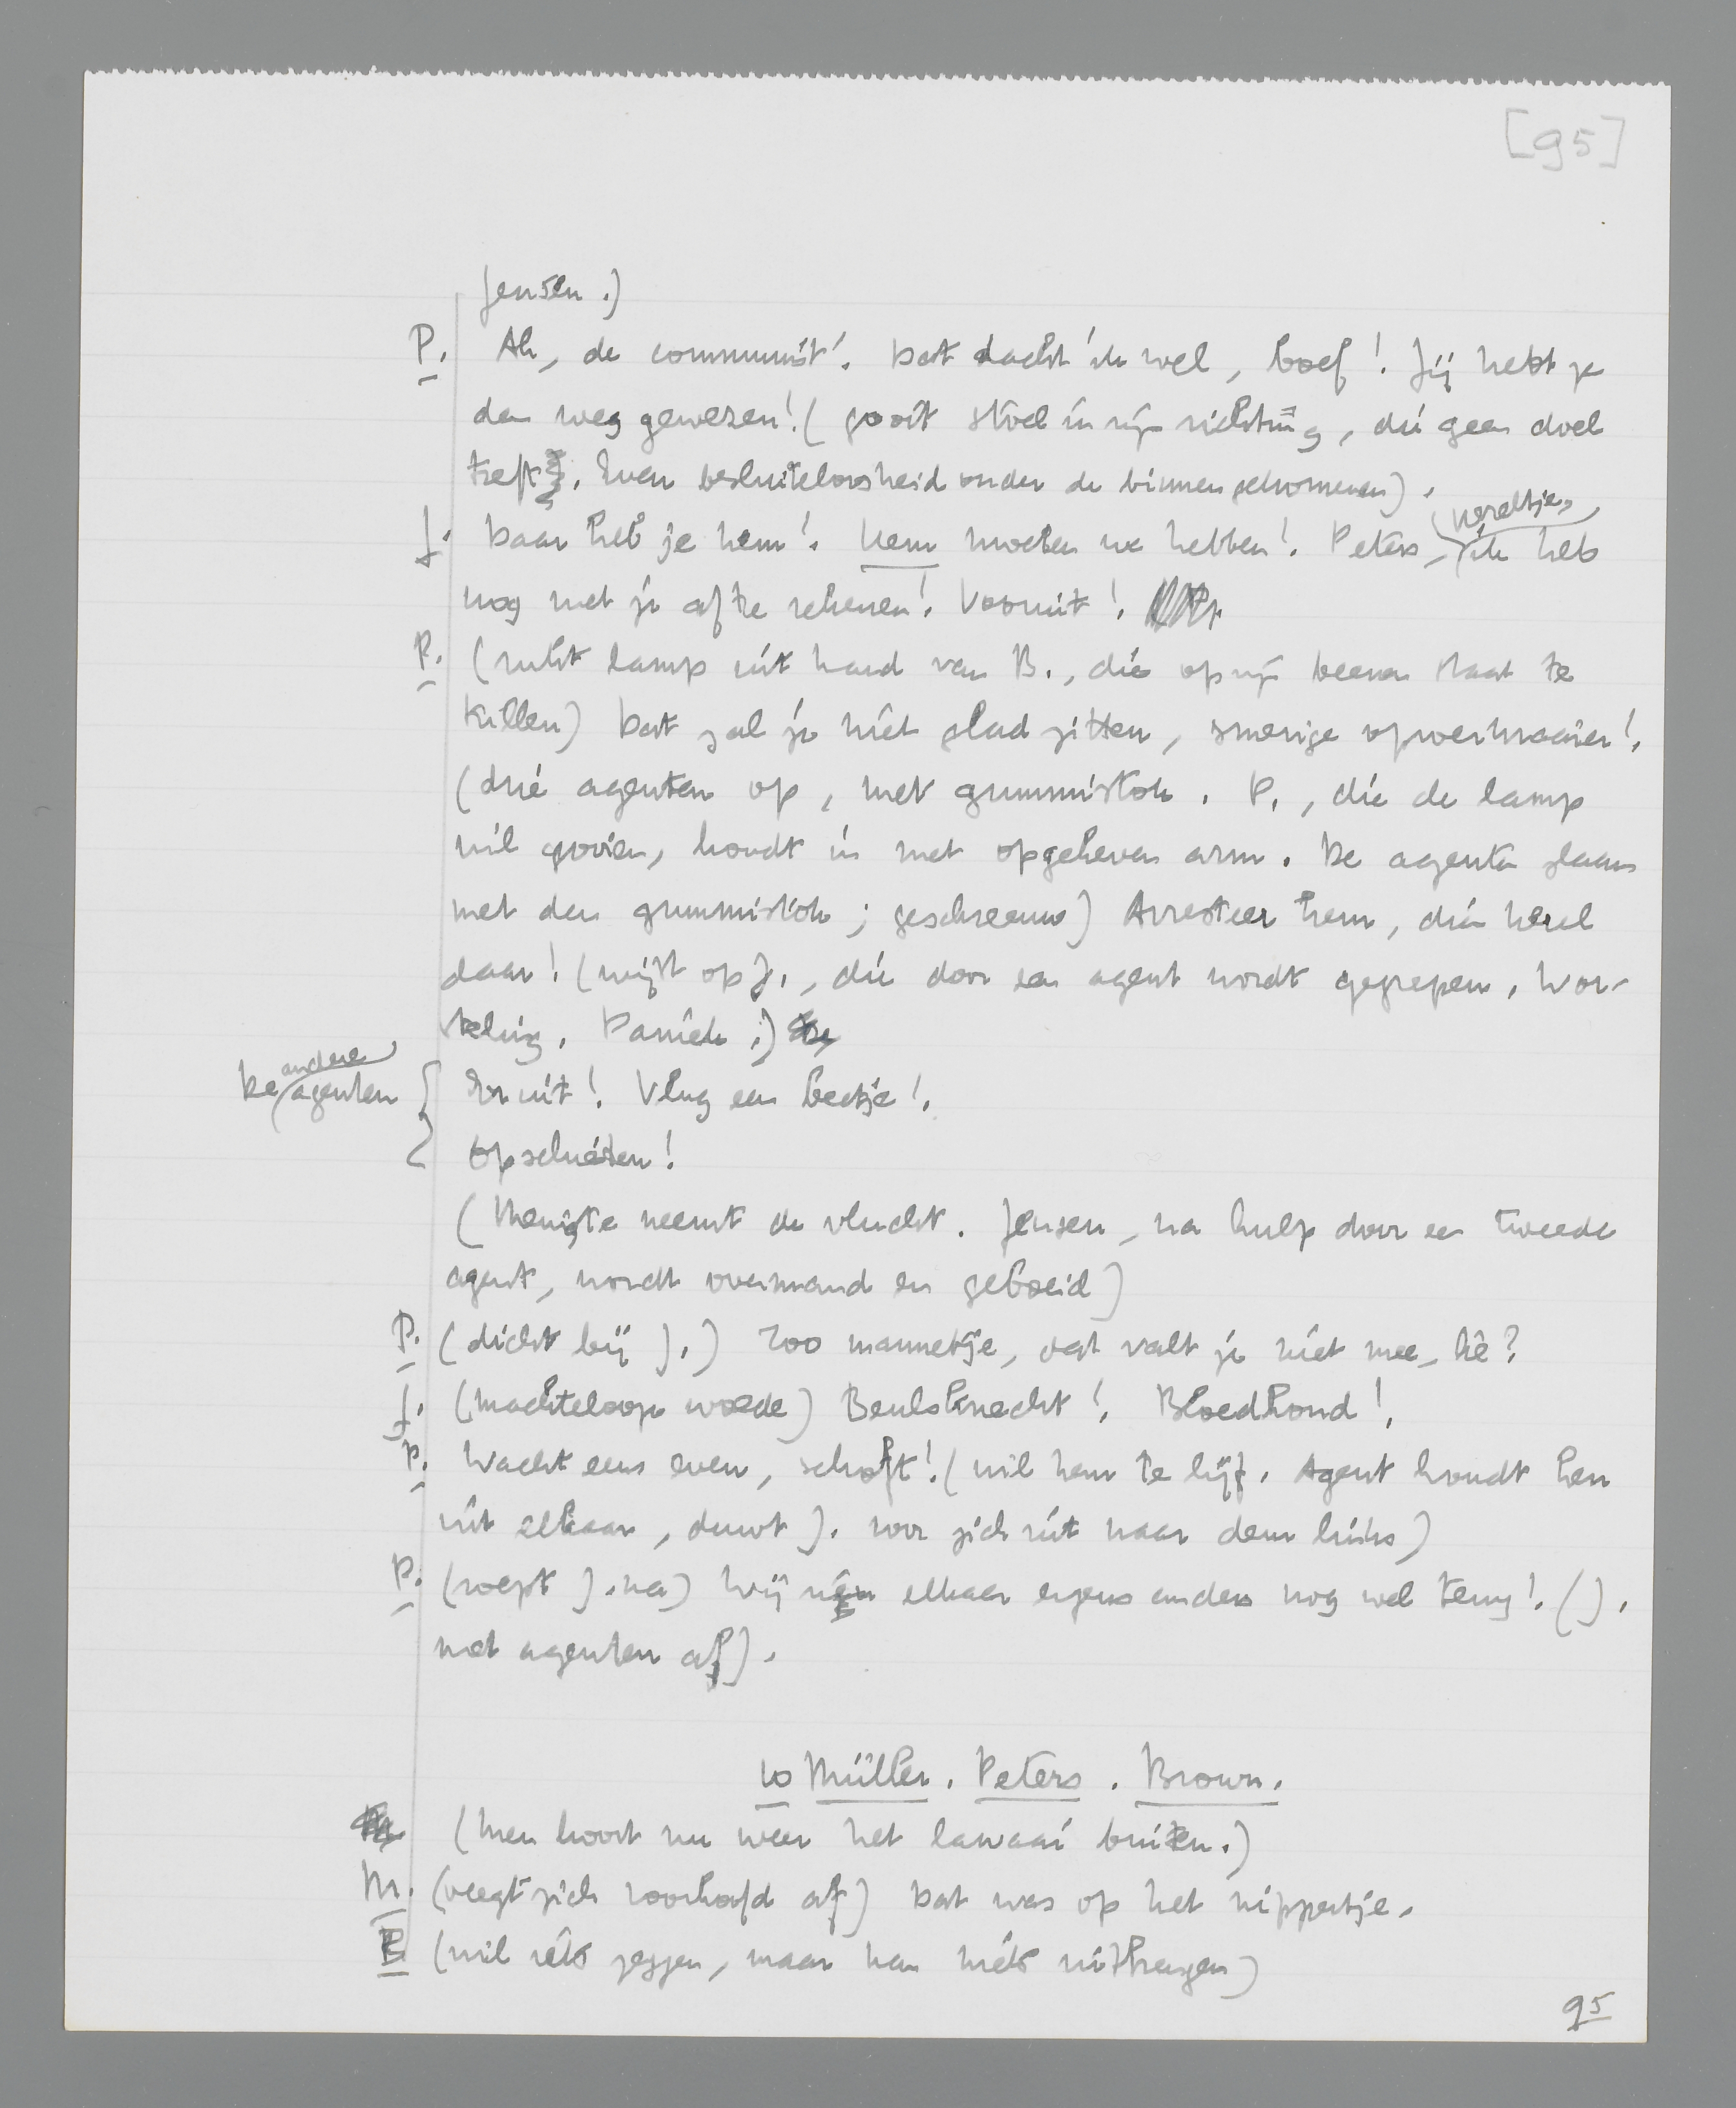 [95]
Jensen.)
P. Ah, de communist! Dat dacht ik wel, boef! Jij hebt ze
den weg gewezen! (gooit stoel in zijn richting, die geen doel
treft. Even besluiteloosheid onder de binnengekomenen).
kereltje,
J. Daar heb je hem! Hem moeten we hebben! Peters, ik heb
nog met je af te rekenen! Vooruit!
P. (rukt lamp uit hand van B., die op zijn beenen staat te
trillen) Dat zal je niet glad zitten, smerige opruier!
(drie agenten op, met gummistok. P., die de lamp
wil gooien, houdt in met opgeheven arm. De agenten slaan
met den gummistok; geschreeuw) Arresteer hem, die kerel
daar! (wijst op J., die door een agent wordt gegrepen. Wor-
steling. Paniek.)
andere
De agenten { Eruit! Vlug een beetje!
Opschieten!
(Menigte neemt de vlucht. Jensen, na hulp door een tweede
agent, wordt overmand en geboeid)
P. (dicht bij J.) Zoo mannetje, dat valt je niet mee, hè?
J. (machtelooze woede) Beulsknecht! Bloedhond!
P. Wacht eens even, schoft! (wil hem te lijf. Agent houdt hen
uit elkaar, duwt J. voor zich uit naar deur links)
P. (roept J. na) Wij zien elkaar ergens anders nog wel terug! (J.
met agenten af).
10 Müller. Peters. Brown.
(Men hoort nu weer het lawaai buiten.)
M. (veegt zich voorhoofd af) Dat was op het nippertje.
B. (wil iets zeggen, maar kan niets uitbrengen)
95